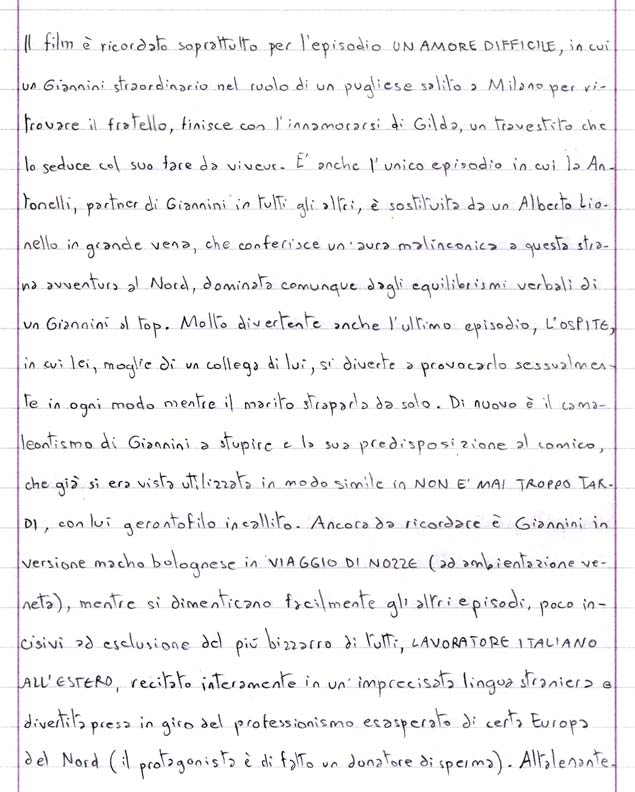 Il film è ricordato soprattutto per l'episodio UN AMORE DIFFICILE, in cui
un Giannini straordinario nel ruolo di un pugliese salito a Milano per ri-
trovare il fratello, finisce con l'innamorarsi di Gilda, un travestito che
lo seduce col suo fare da viveur. E' anche l'unico episodio in cui la An-
tonelli, partner di Giannini in tutti gli altri, è sostituita da un Alberto Lio-
nello in grande vena, che conferisce un'aura malinconica a questa stra-
na avventura al Nord, dominata comunque dagli equilibrismi verbali di
un Giannini al top. Molto divertente anche l'ultimo episodio, L'OSPITE,
in cui lei, moglie di un collega di lui, si diverte a provocarlo sessualmen-
te in ogni modo mentre il marito straparla da solo. Di nuovo è il cama-
leontismo di Giannini a stupire e la sua predisposizione al comico,
che già si era vista utilizzata in modo simile in NON E' MAI TROPPO TAR-
DI, con lui gerontofilo incallito. Ancora da ricordare è Giannini in
versione macho bolognese in VIAGGIO DI NOZZE (ad ambientazione ve-
neta), mentre si dimenticano facilmente gli altri episodi, poco in-
cisivi ad esclusione del più bizzarro di tutti, LAVORATORE ITALIANO
ALL'ESTERO, recitato interamente in un'imprecisata lingua straniera e
divertita presa in giro del professionismo esasperato di certa Europa
del Nord (il protagonista è di fatto un donatore di sperma). Altalenante.